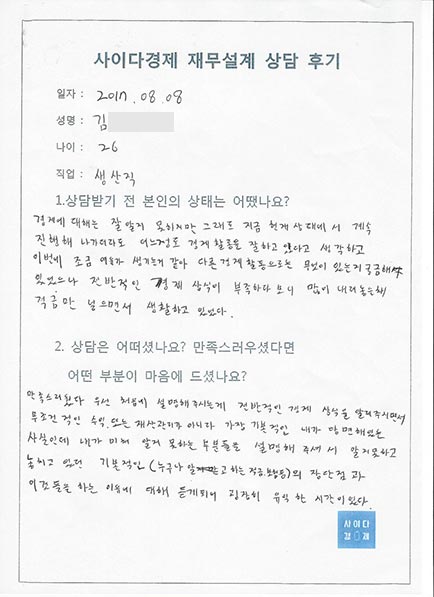 사이다경제 재무설계 상담 후기
일자 : 2017. 08. 08
성명 : 김
나이 : 26
직업 : 생산직
1.상담받기 전 본인의 상태는 어땠나요?
경제에 대해는 잘 알지 못하지만 그래도 지금 현재 상태에서 계속
진행해 나가더라도 어느정도 경제 활동을 잘하고 있다고 생각하고
이번에 조금 여유가 생기는거 같아 다른 경제 활동으로는 무엇이 있는지 궁금해
있었으나 전반적인 경제 상식이 부족하다 보니 많이 내려놓은채
적금만 넣으면서 생활하고 있었다.
2. 상담은 어떠셨나요? 만족스러우셨다면
어떤 부분이 마음에 드셨나요?
만족스러웠다 우선 처음에 설명해주시는게 전반적인 경제 상식을 알려주시면서
무조건적인 수익, 또는 재산관리가 아니라 가장 기본적인 내가 당면해있는
사실인데 내가 미처 알지 못하는 부분들을 설명해 주셔서 알지못하고
놓치고 있던 기본적인 (누구나 하는 적금, 보험등)의 장단점과
이것들을 하는 이유에 대해 듣게되어 굉장히 유익한 시간이었다.
사이다
경제